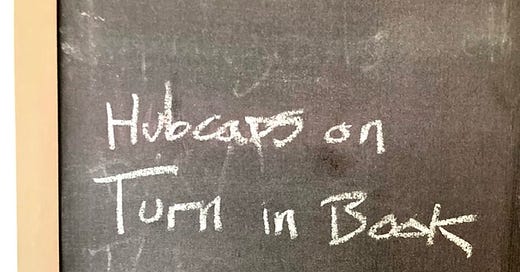 Hubcaps on
Turn in Book